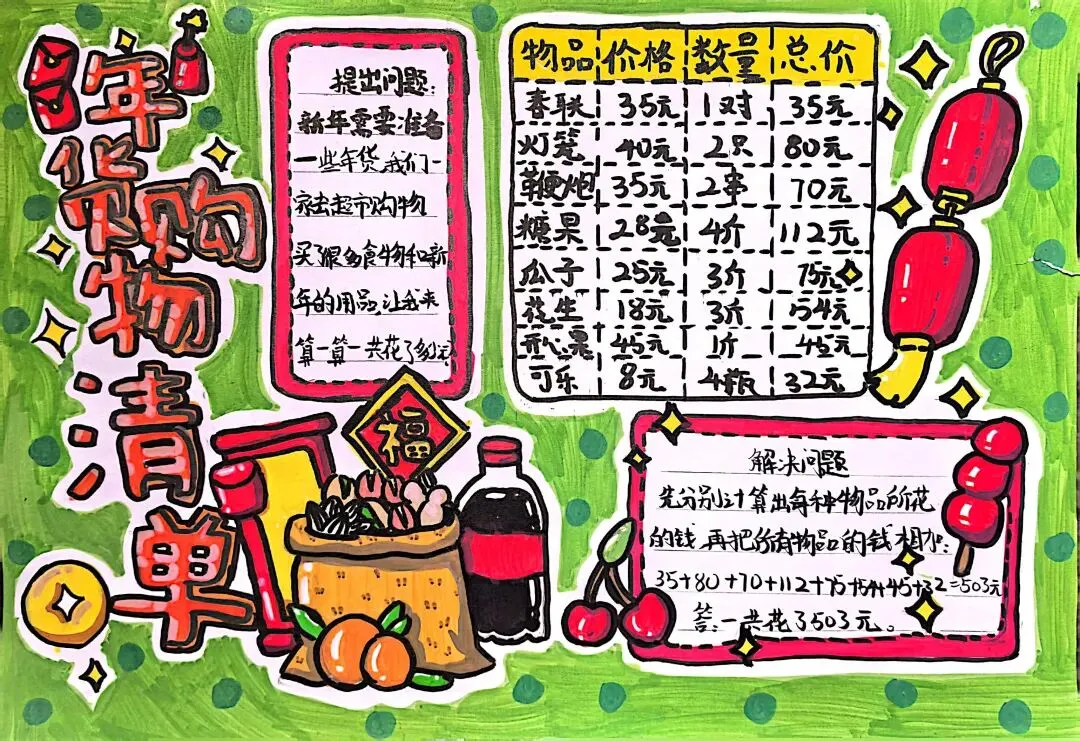 年货购物清单
提出问题:
新年需要准备
一些年货,我们一
家去超市购物
买了很多食物和新
年的用品,让我来
算一算一共花了多少元
物品 价格 数量 总价
春联 35元 1对 35元
灯笼 40元 2只 80元
鞭炮 35元 2串 70元
糖果 28元 4斤 112元
瓜子 25元 3斤 75元
花生 18元 3斤 54元
开心果 45元 1斤 45元
可乐 8元 4瓶 32元
福
解决问题
先分别计算出每种物品所花
的钱,再把所有物品的钱相加:
35+80+70+112+75+54+45+32=503元
答:一共花了503元。